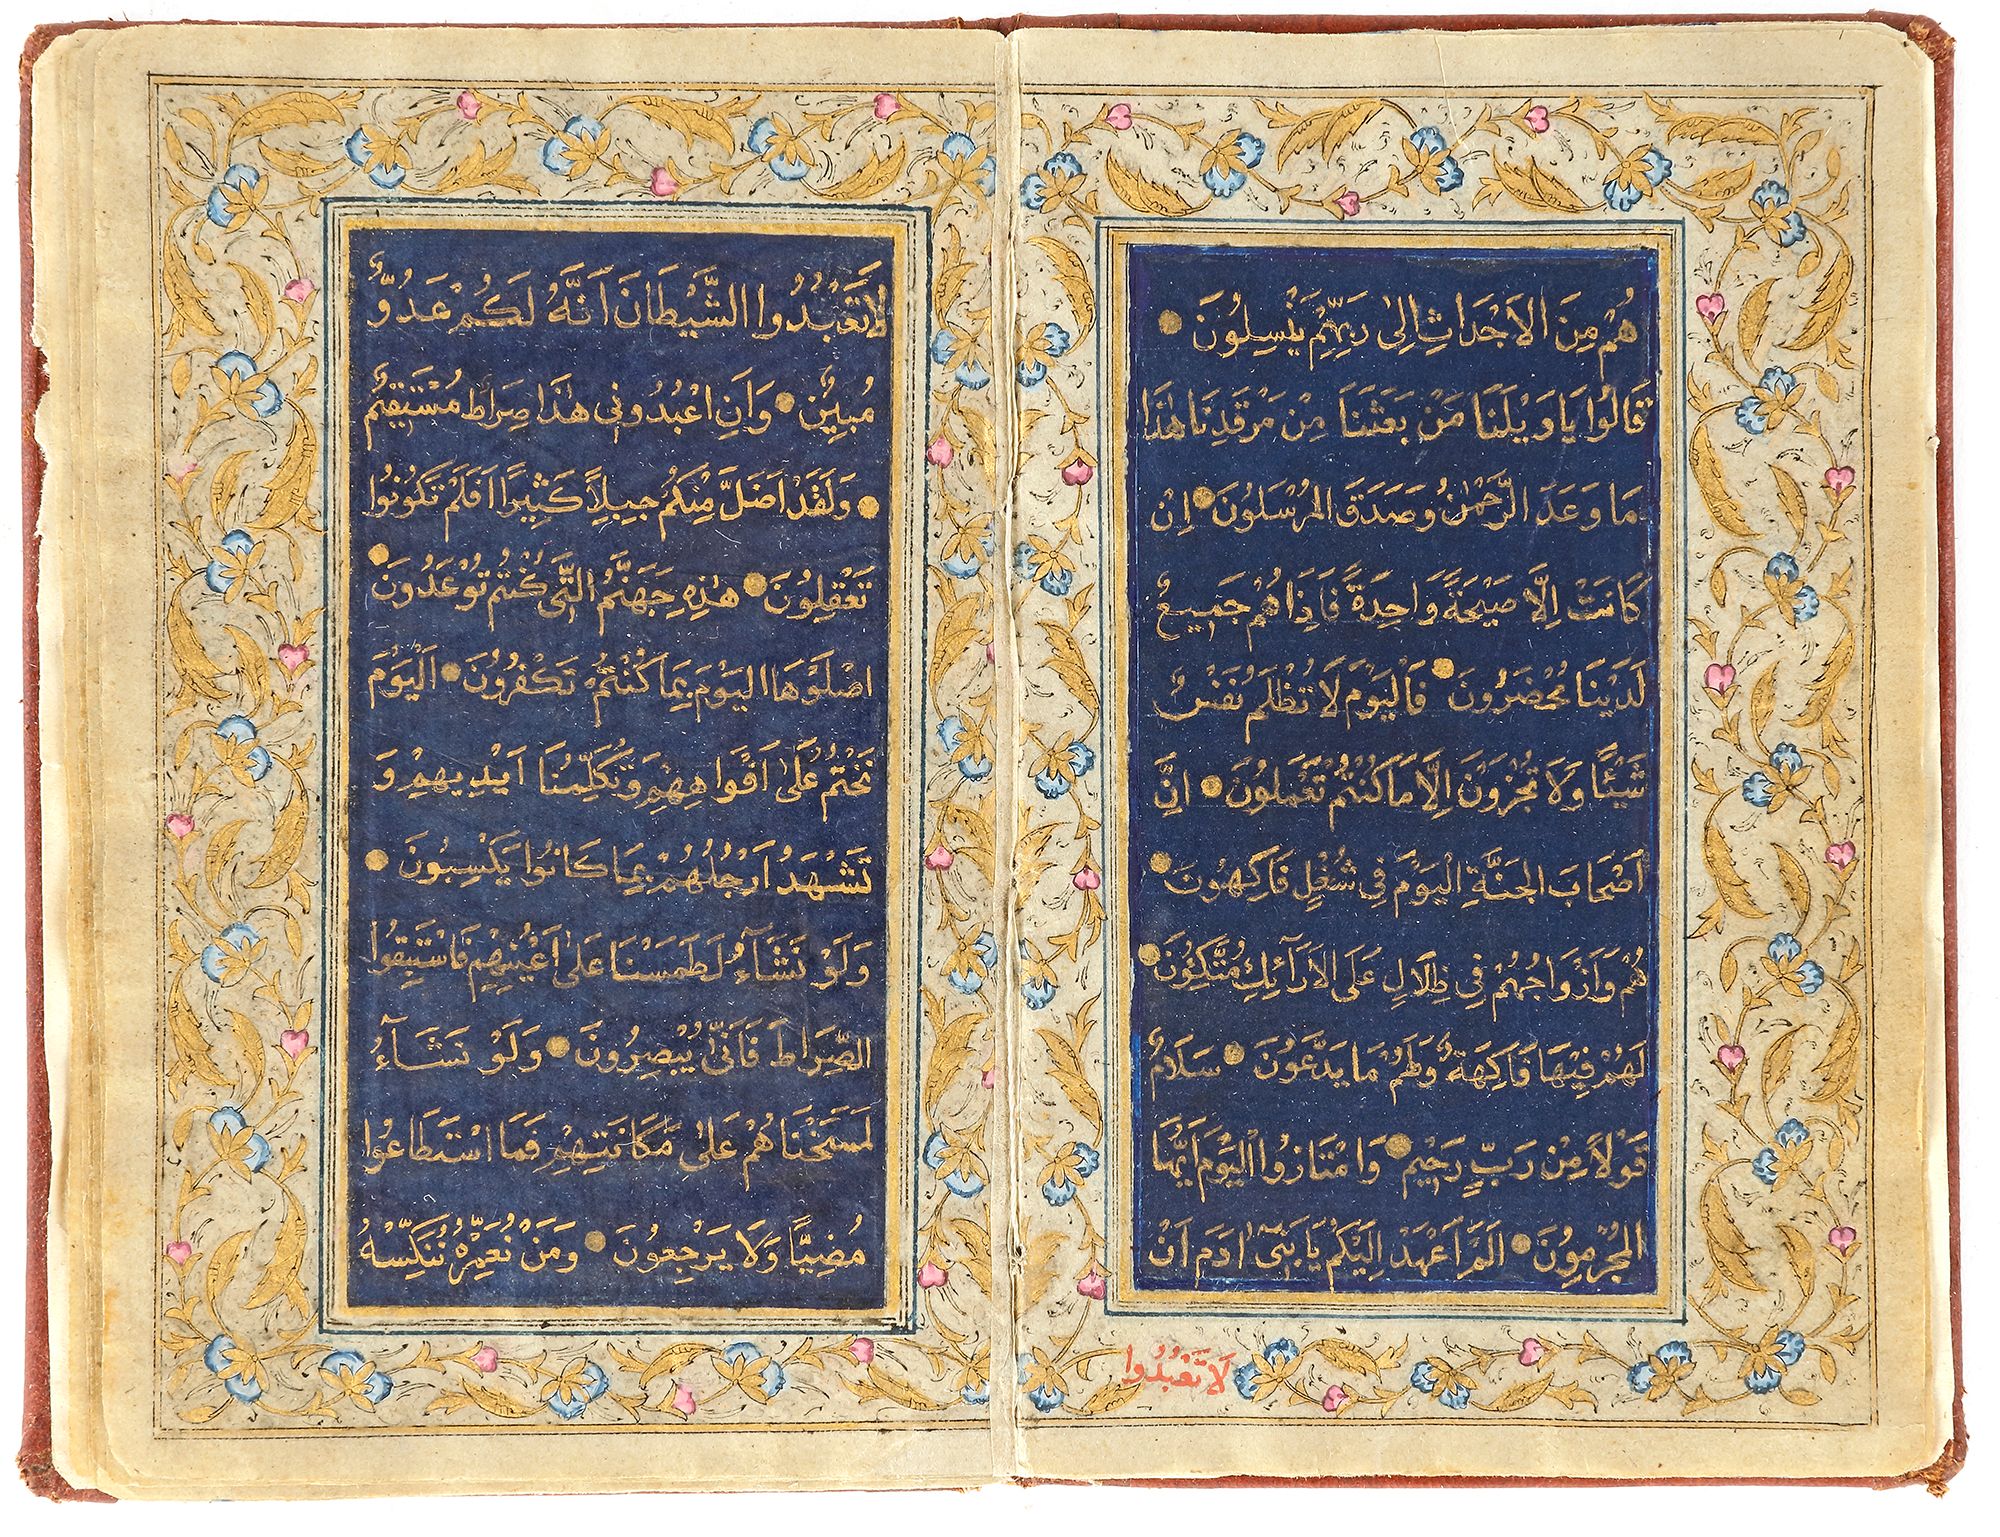 هُمْ مِنَ الاَجْدَاثِ اِلٰى رَبِّهِمْ يَنْسِلُونَ
قَالُوا يَا وَيْلَنَا مَنْ بَعَثَنَا مِنْ مَرْقَدِنَا هٰذَا
مَا وَعَدَ الرَّحْمٰنُ وَصَدَقَ المُرْسَلُونَ اِنْ
كَانَتْ اِلَّا صَيْحَةً وَاحِدَةً فَاِذَا هُمْ جَمِيعٌ
لَدَيْنَا مُحْضَرُونَ فَالْيَوْمَ لَا تُظْلَمُ نَفْسٌ
شَيْئًا وَلَا تُجْزَوْنَ اِلَّا مَا كُنْتُمْ تَعْمَلُونَ اِنَّ
اَصْحَابَ الجَنَّةِ اليَوْمَ فِى شُغُلٍ فَاكِهُونَ
هُمْ وَاَزْوَاجُهُمْ فِى ظِلَالٍ عَلَى الاَرَآئِكِ مُتَّكِؤُنَ
لَهُمْ فِيْهَا فَاكِهَةٌ وَلَهُمْ مَا يَدَّعُونَ سَلَامٌ
قَوْلًا مِنْ رَبٍّ رَحِيمٍ وَامْتَازُوا الْيَوْمَ اَيُّهَا
المُجْرِمُونَ اَلَمْ اَعْهَدْ اِلَيْكُمْ يَا بَنِىٓ اٰدَمَ اَنْ
لَا تَعْبُدُوا
لَا تَعْبُدُوا الشَّيْطَانَ اَنَّهُ لَكُمْ عَدُوٌّ
مُبِينٌ وَاَنِ اعْبُدُونِى هٰذَا صِرَاطٌ مُسْتَقِيْمٌ
وَلَقَدْ اَضَلَّ مِنْكُمْ جِبِلًّا كَثِيرًا اَفَلَمْ تَكُونُوا
تَعْقِلُونَ هٰذِهِ جَهَنَّمُ الَّتِى كُنْتُمْ تُوْعَدُونَ
اصْلَوْهَا اليَوْمَ بِمَا كُنْتُمْ تَكْفُرُونَ اَلْيَوْمَ
نَخْتِمُ عَلٰى اَفْوَاهِهِمْ وَتُكَلِّمُنَا اَيْدِيهِمْ وَ
تَشْهَدُ اَرْجُلُهُمْ بِمَا كَانُوا يَكْسِبُونَ
وَلَوْ نَشَآءُ لَطَمَسْنَا عَلٰى اَعْيُنِهِمْ فَاسْتَبَقُوا
الصِّرَاطَ فَاَنّٰى يُبْصِرُونَ وَلَوْ نَشَآءُ
لَمَسَخْنَاهُمْ عَلٰى مَكَانَتِهِمْ فَمَا اسْتَطَاعُوا
مُضِيًّا وَلَا يَرْجِعُونَ وَمَنْ نُعَمِّرْهُ نُنَكِّسْهُ